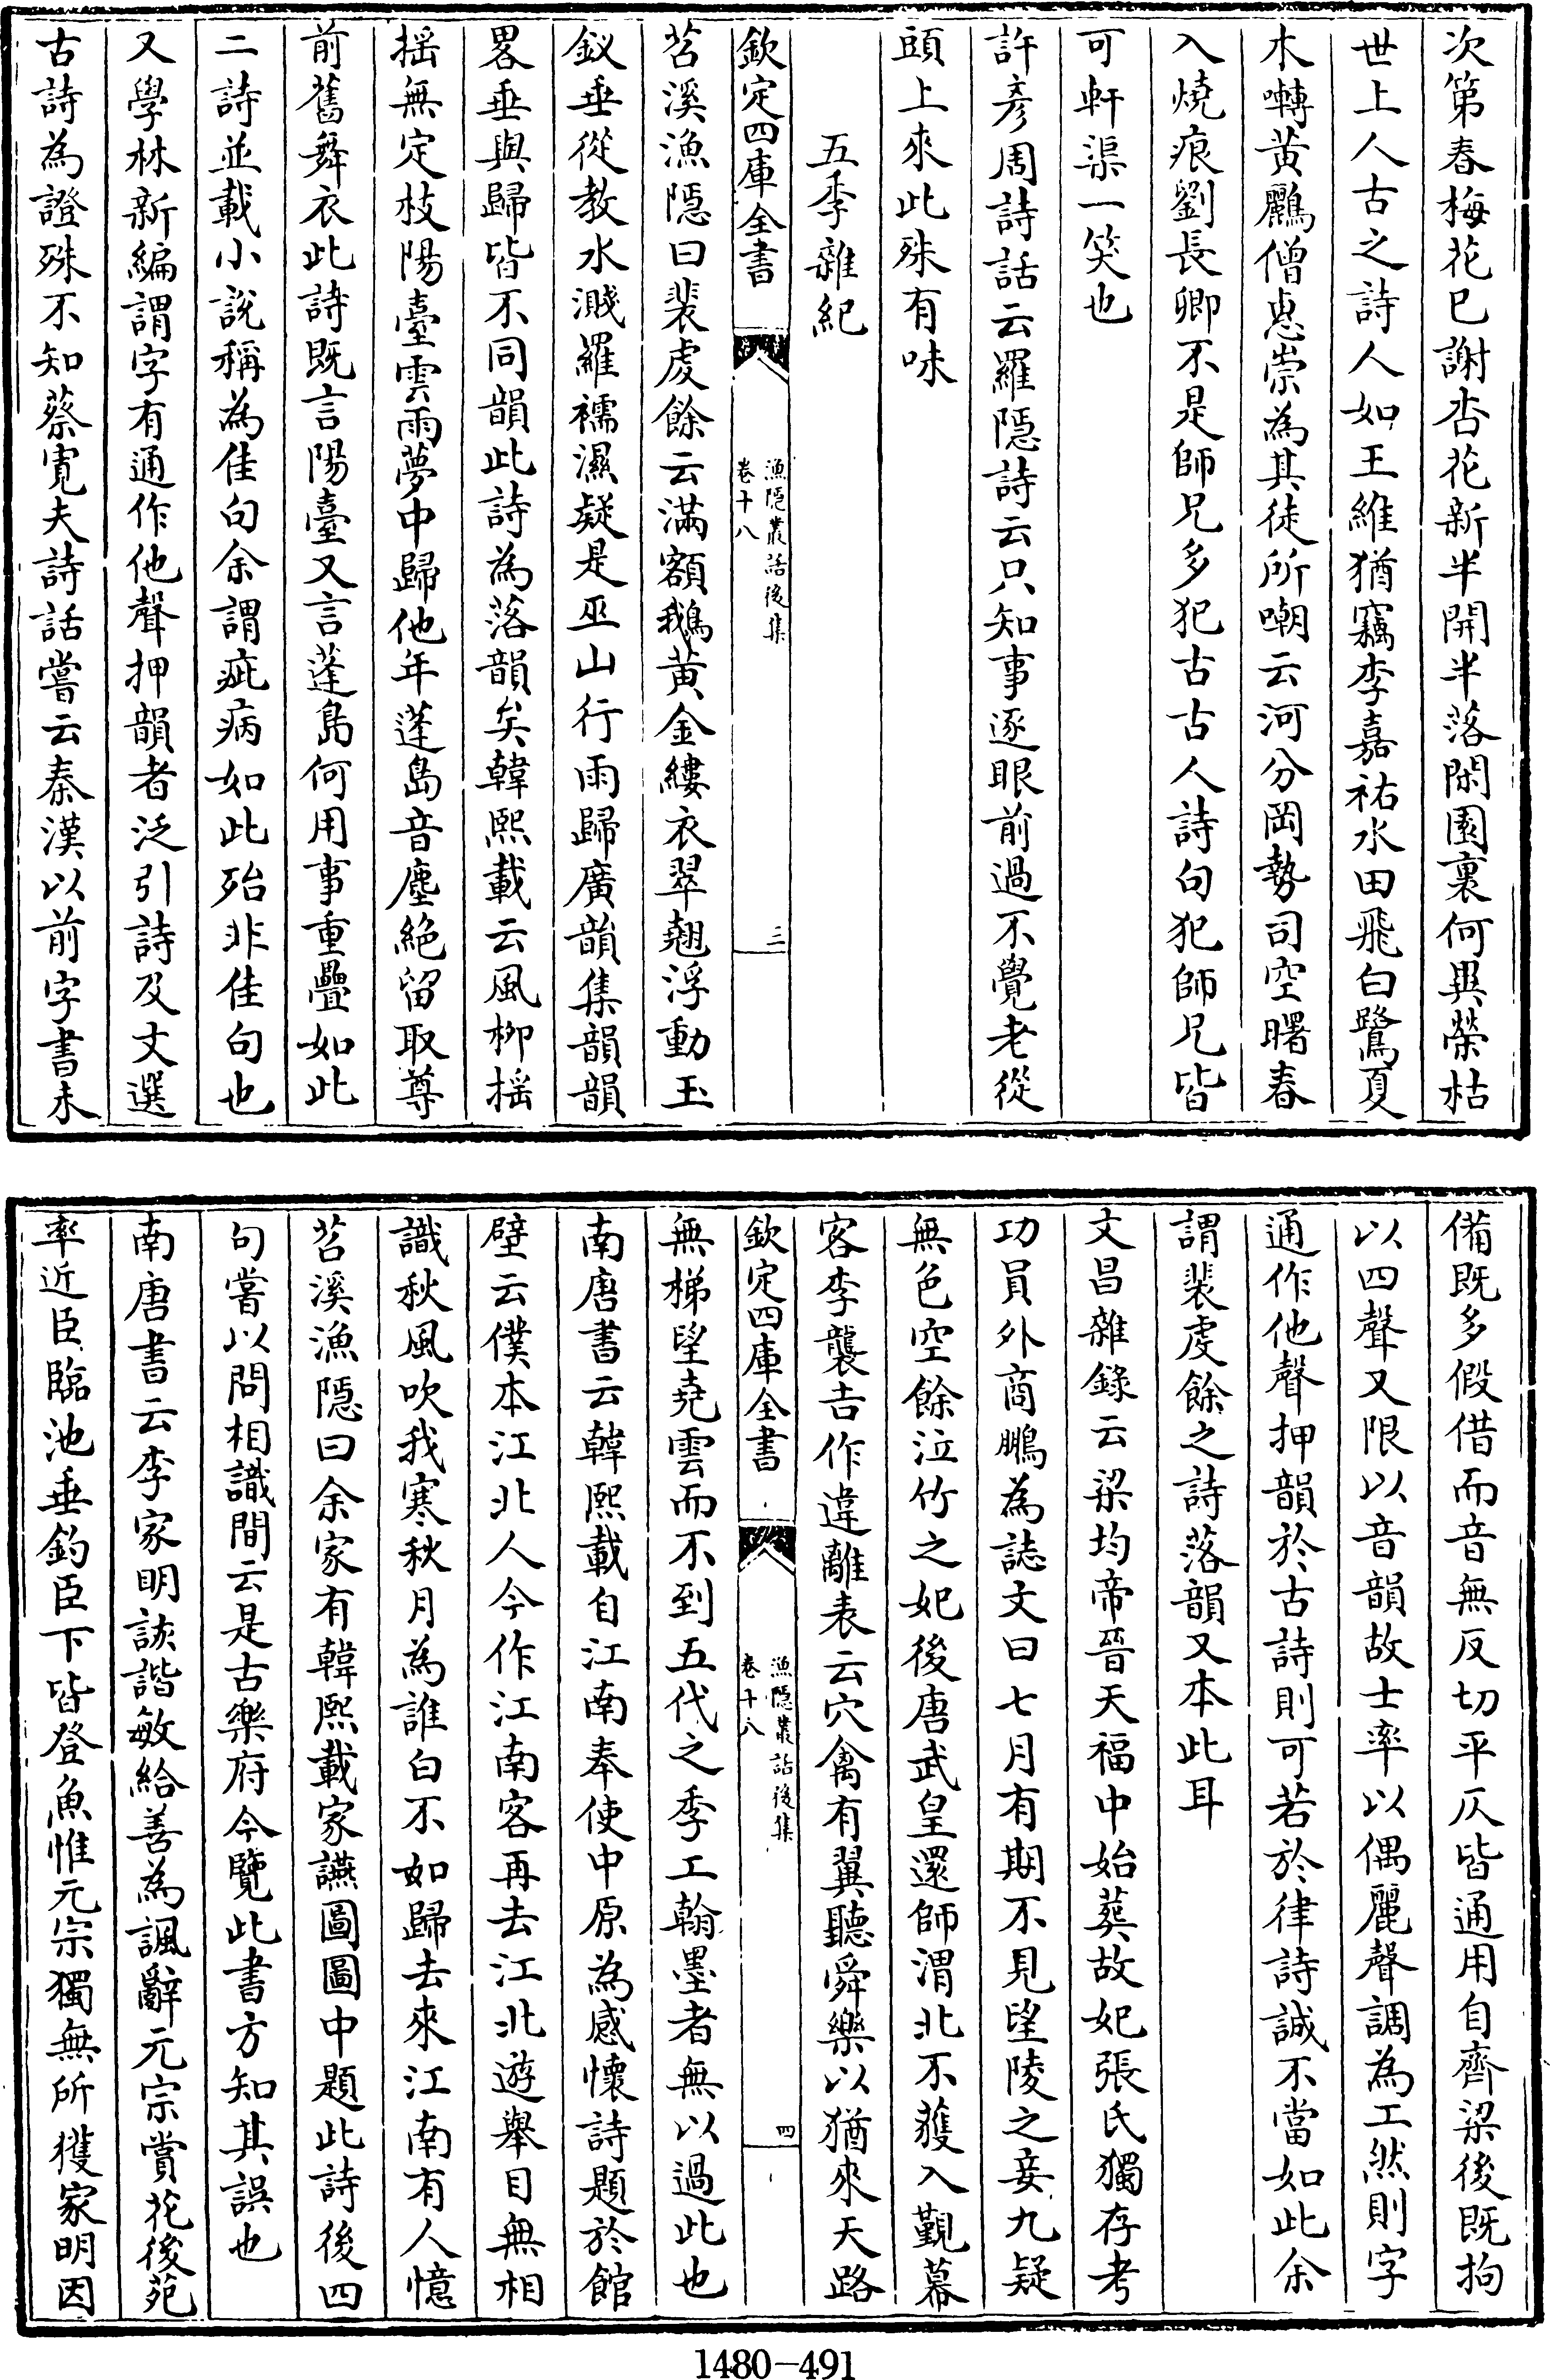 次第春梅花已謝杏花新半開半落閑園裏何異榮枯
世上人古之詩人如王維猶竊李嘉祐水田飛白鷺夏
木囀黃鸝僧惠崇為其徒所嘲云河分岡勢司空曙春
入燒痕劉長卿不是師兄多犯古古人詩句犯師兄皆
可軒渠一笑也
許彥周詩話云羅隱詩云只知事逐眼前過不覺老從
頭上來此殊有味
五季雜紀
欽定四庫全書
漁隱叢話後集
卷十八
三
苕溪漁隱曰裴虔餘云滿額鵝黃金縷衣翠翹浮動玉
釵垂從教水濺羅襦濕疑是巫山行雨歸廣韻集韻韻
畧垂與歸皆不同韻此詩為落韻矣韓熙載云風柳揺
揺無定枝陽臺雲雨夢中歸他年蓬島音塵絕留取尊
前舊舞衣此詩既言陽臺又言蓬島何用事重疊如此
二詩並載小說稱為佳句余謂疵病如此殆非佳句也
又學林新編謂字有通作他聲押韻者泛引詩及文選
古詩為證殊不知蔡寬夫詩話嘗云秦漢以前字書未
備既多假借而音無反切平仄皆通用自齊梁後既拘
以四聲又限以音韻故士率以偶麗聲調為工然則字
通作他聲押韻於古詩則可若於律詩誠不當如此余
謂裴虔餘之詩落韻又本此耳
文昌雜錄云梁均帝晉天福中始葬故妃張氏獨存考
功員外商鵬為誌文曰七月有期不見望陵之妾九疑
無色空餘泣竹之妃後唐武皇還師渭北不獲入覲幕
客李襲吉作違離表云穴禽有翼聽舜樂以猶來天路
欽定四庫全書
漁隱叢話後集
卷十八
四
無梯望堯雲而不到五代之季工翰墨者無以過此也
南唐書云韓熙載自江南奉使中原為感懷詩題於館
壁云僕本江北人今作江南客再去江北遊舉目無相
識秋風吹我寒秋月為誰白不如歸去來江南有人憶
苕溪漁隱曰余家有韓熙載家讌圖圖中題此詩後四
句嘗以問相識間云是古樂府今覽此書方知其誤也
南唐書云李家明詼諧敏給善為諷辭元宗賞花後苑
率近臣臨池垂釣臣下皆登魚惟元宗獨無所獲家明因
1480-491